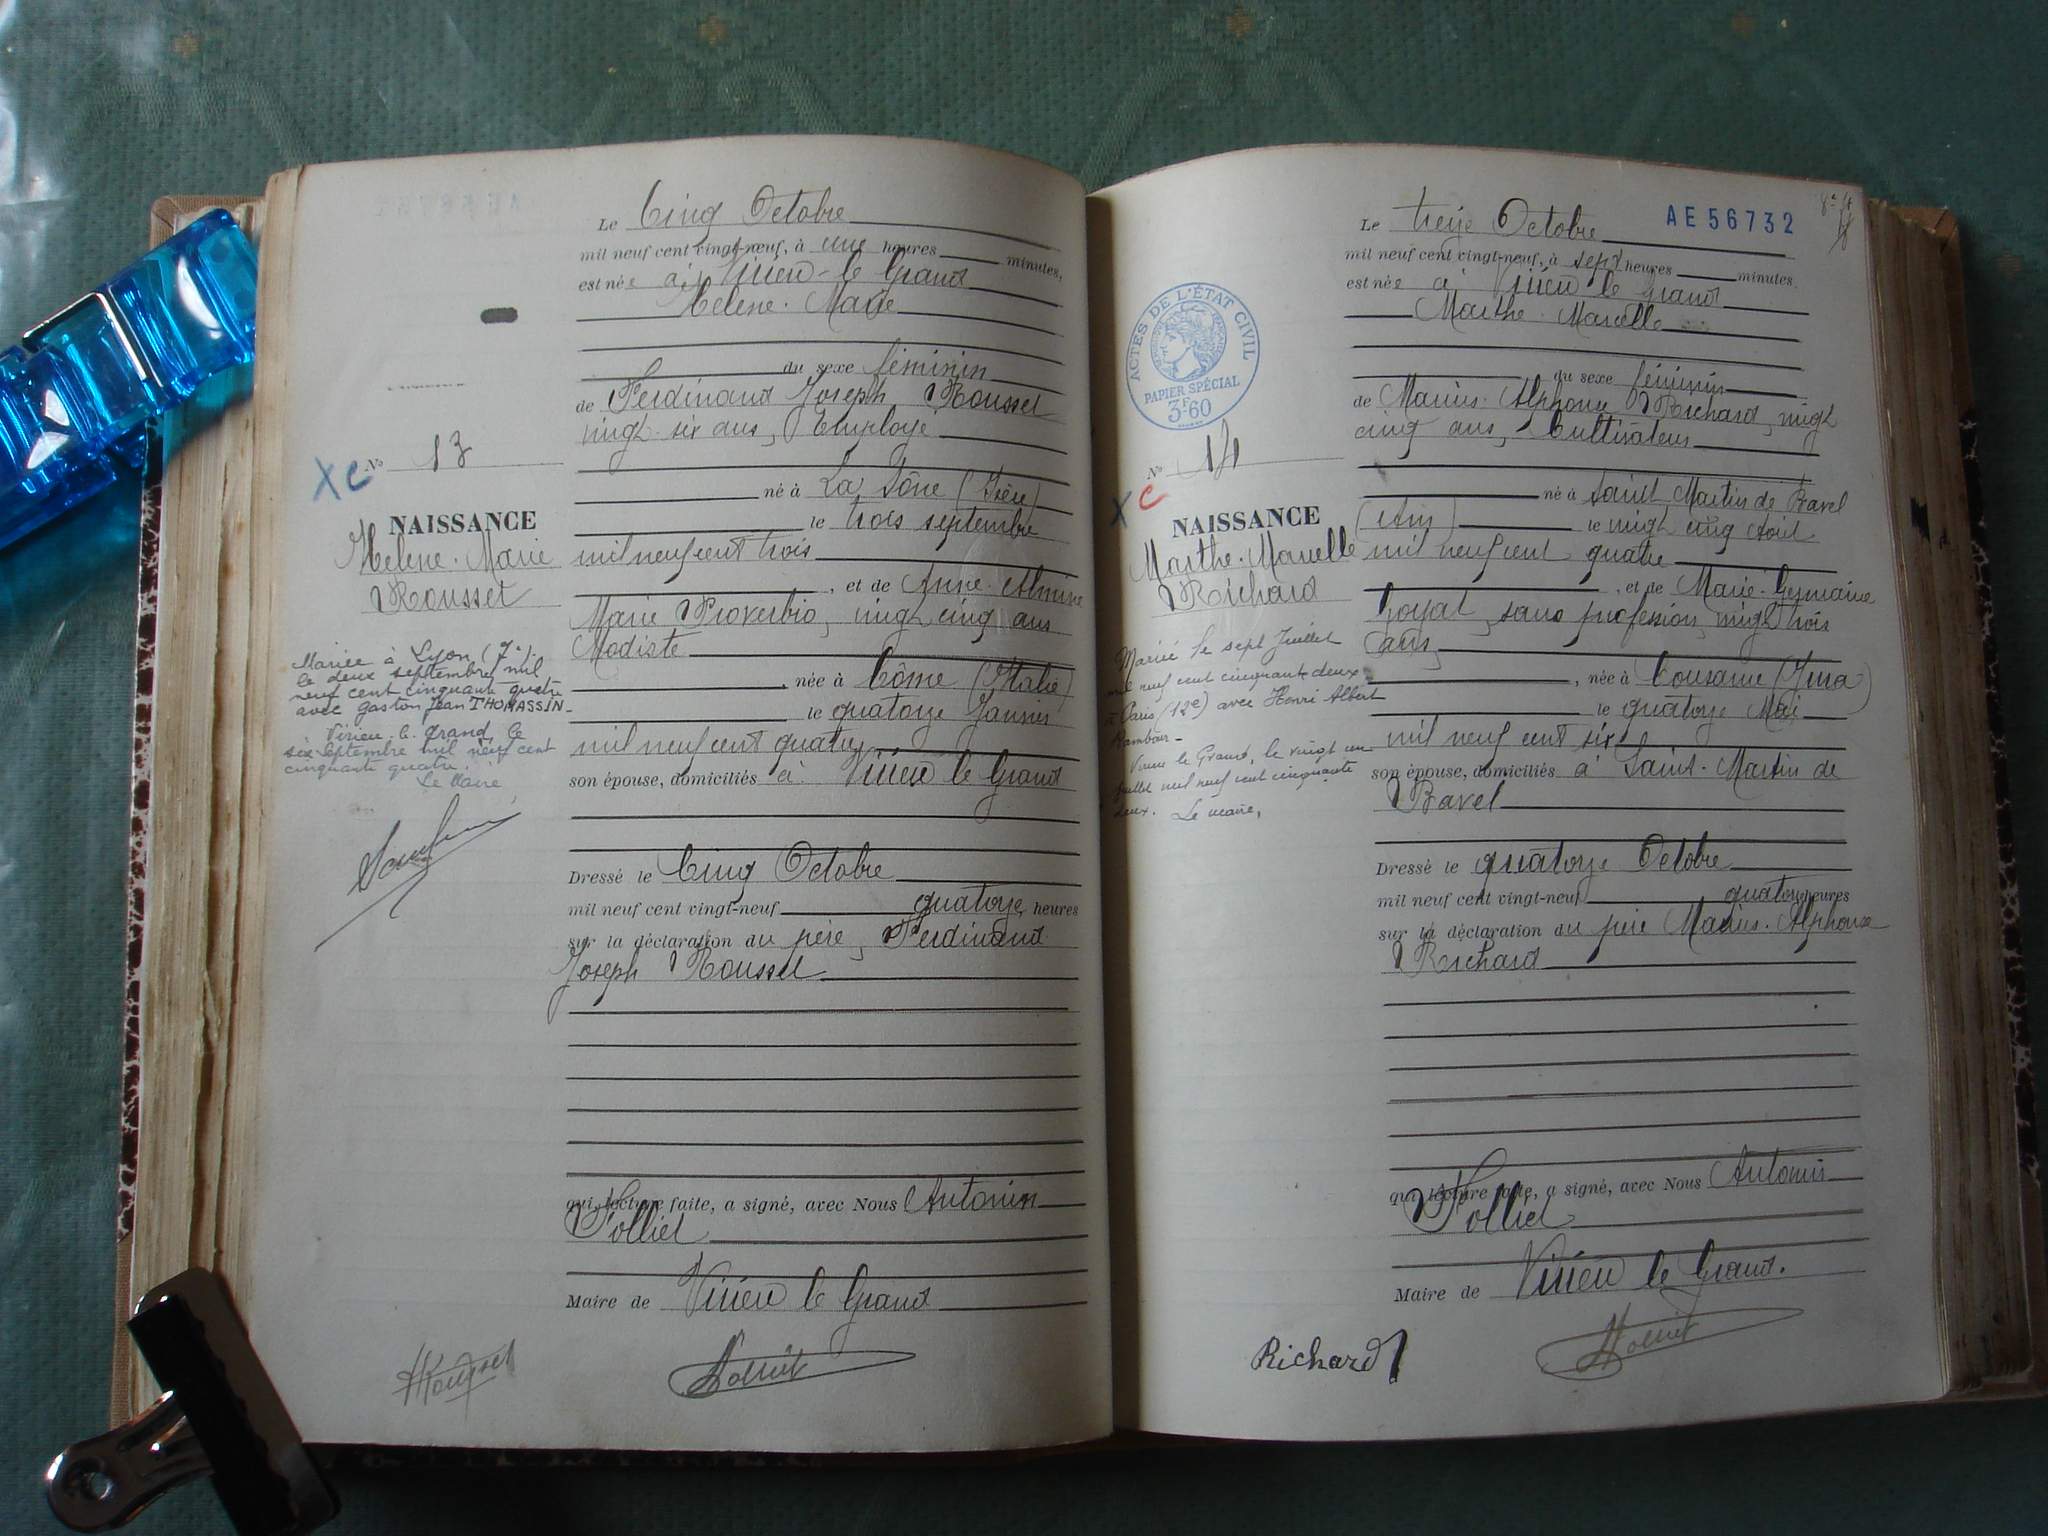 Le Cinq Octobre
mil neuf cent vingt-neuf, à une heures minutes,
est née à Virieu-le Grand
Helene. Marie
du sexe féminin
de Ferdinand Joseph Rousset
vingt-six ans, Employé
né à La Sône (Isère)
le trois septembre
mil neuf cent trois
, et de Anne-Almine
Marie Proverbio, vingt cinq ans
Modiste
, née à Côme (Italie)
le quatorze Janvier
mil neuf cent quatre,
son épouse, domiciliés à Virieu le Grand
Dressé le Cinq Octobre
mil neuf cent vingt-neuf quatorze heures
sur la déclaration du père, Ferdinand
Joseph Rousset
qui, lecture faite, a signé, avec Nous Antonin
Folliet
Maire de Virieu le Grand
Rousset
Folliet
No 13
XC
NAISSANCE
Helene. Marie
Rousset
Mariée à Lyon (7e).
le deux septembre mil
neuf cent cinquante quatre
avec gaston Jean THOMASSIN-
Virieu-le-Grand, le
six septembre mil neuf cent
cinquante quatre.
Le Maire,
AE 56732
Le treize Octobre
mil neuf cent vingt-neuf, à sept heures minutes.
est née à Virieu le Grand
Marthe. Marcelle
du sexe féminin
de Marius. Alphonse Richard, vingt
cinq ans, Cultivateur
né à Saint Martin de Bavel
(Ain) le vingt cinq Août
mil neuf cent quatre
, et de Marie-Germaine
sans profession, vingt trois
ans,
, née à Cousance (Jura)
le quatorze Mai
mil neuf cent six
son épouse, domiciliés à Saint-Martin de
Bavel
Dressé le quatorze Octobre
mil neuf cent vingt-neuf quatorze heures
sur la déclaration du père Marius. Alphonse
Richard
qui, lecture faite, a signé, avec Nous Antonin
Folliet
Maire de Virieu le Grand.
Richard
Folliet
ACTES DE L'ÉTAT CIVIL
PAPIER SPÉCIAL
3F60
No 14
XC
NAISSANCE
Marthe. Marcelle
Richard
Mariée le sept Juillet
mil neuf cent cinquante deux
à Paris (12e) avec Henri Albert
Virieu le Grand, le vingt un
Juillet mil neuf cent cinquante
deux. Le maire,